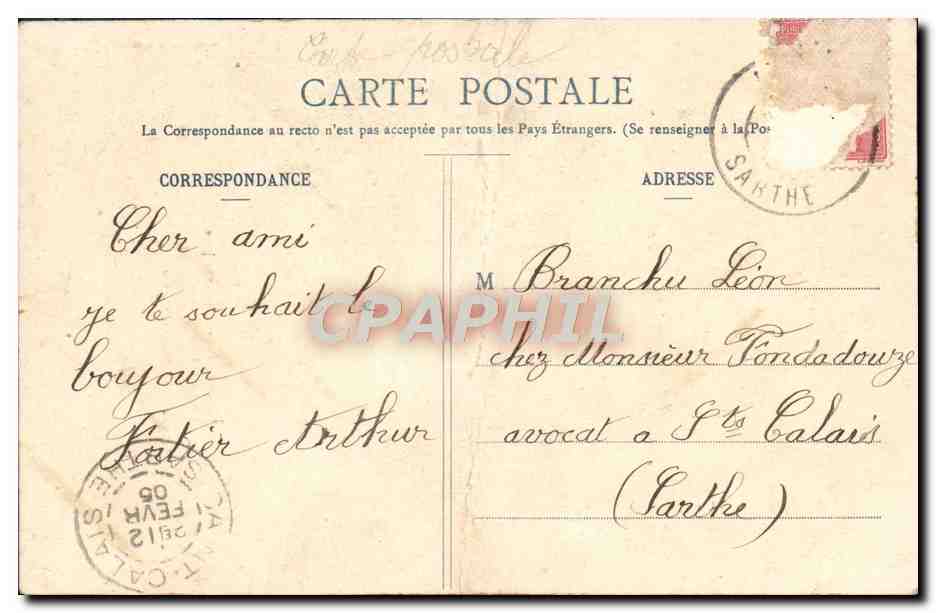 Carte postale
CARTE POSTALE
La Correspondance au recto n'est pas acceptée par tous les Pays Étrangers. (Se renseigner à la Pos
CORRESPONDANCE
Cher ami
je te souhait le
boujour
Fortier Arthur
ADRESSE
M Branchu Léon
chez Monsieur Fondadouze
avocat a Sts Calais
(Sarthe)
SARTHE
SAINT-CALAIS SARTHE
12
FEVR
05
CPAPHIL